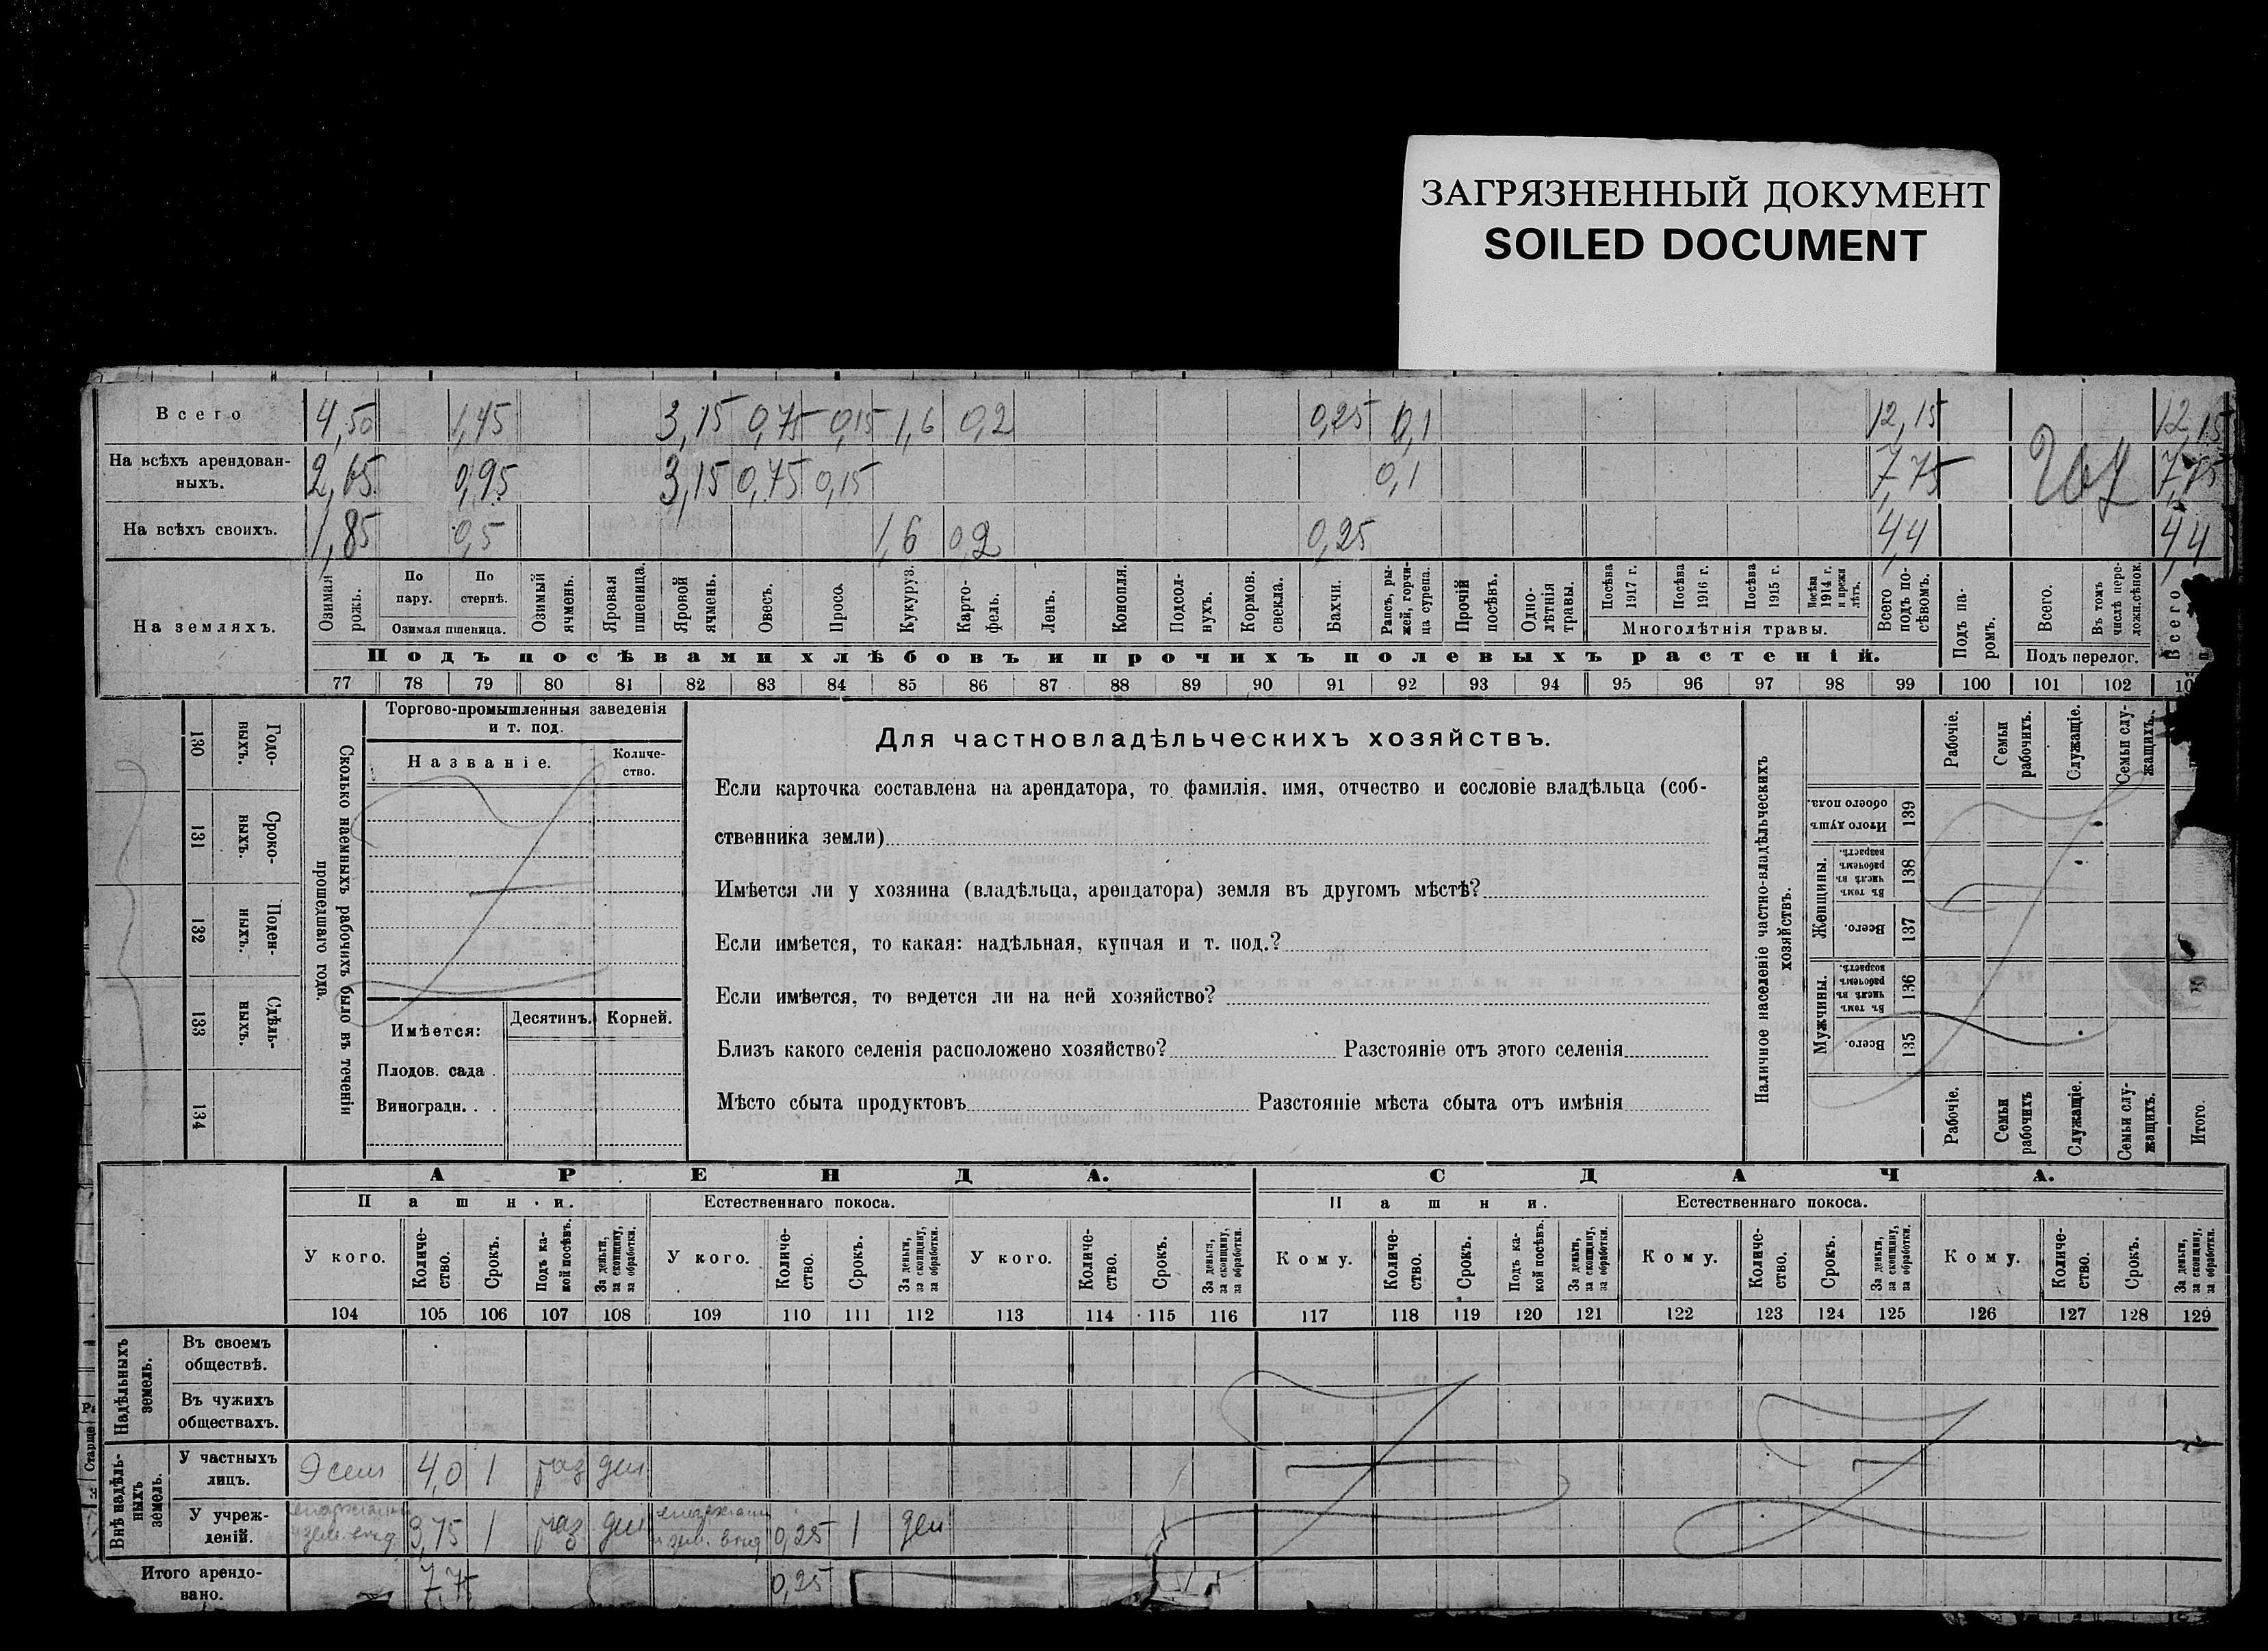 ЗАГРЯЗНЕННЫЙ ДОКУМЕНТ
SOILED DOCUMENT
Всего 4,50 1,45 3,15 0,75 0,15 1,6 0,2 0,25 0,1 12,15 12,15
На всѣхъ арендован-
ныхъ. 2,65 0,95 3,15 0,75 0,15 0,1 7,75 7,75
На всѣхъ своихъ. 1,85 0,5 1,6 0,2 0,25 4,4 4,4
На земляхъ.
Озимая рожь.
По пару.
По стернѣ.
Озимая пшеница.
Озимый ячмень.
Яровая пшеница.
Яровой ячмень.
Овесъ.
Просо.
Кукуруз.
Карто-
фель.
Ленъ.
Конопля.
Подсол-
нухъ.
Кормов. свекла.
Бахчи.
Рапсъ, ры-
жей, горчи-
ца сурепа.
Прочій посѣвъ.
Одно-
лѣтнія травы.
Посѣва 1917 г.
Посѣва 1916 г.
Посѣва 1915 г.
Посѣва 1914 г. и прежн лѣтъ.
Многолѣтнія травы.
Всего подъ по-
сѣвомъ.
Подъ па-
ромъ.
Всего.
Въ томъ числѣ пере-
ложн.сѣнок.
Подъ перелог.
Всего
Подъ посѣвами хлѣбовъ и прочихъ полевыхъ растеній.
77 78 79 80 81 82 83 84 85 86 87 88 89 90 91 92 93 94 95 96 97 98 99 100 101 102 10
130 131 132 133 134
Годо-
ныхъ.
Сроко-
ныхъ.
Поден-
ныхъ.
Сдѣль-
ныхъ.
Сколько наемныхъ рабочихъ было въ теченіи
прошедшаго года.
Торгово-промышленныя заведенія
и т. под.
Названіе.
Количе-
ство.
Имѣется:
Десятинъ. Корней.
Плодов. сада .
Виноградн. . .
Для частновладѣльческихъ хозяйствъ.
Если карточка составлена на арендатора, то фамилія, имя, отчество и сословіе владѣльца (соб-
ственника земли)
Имѣется ли у хозяина (владѣльца, арендатора) земля въ другомъ мѣстѣ?
Если имѣется, то какая: надѣльная, купчая и т. под.?
Если имѣется, то ведется ли на ней хозяйство?
Близъ какого селенія расположено хозяйство? Разстояніе отъ этого селенія
Мѣсто сбыта продуктовъ Разстояніе мѣста сбыта отъ имѣнія
Наличное населеніе частно-владѣльческихъ
хозяйствъ.
Рабочіе.
Семьи рабочихъ.
Служащіе.
Семьи слу-
жащихъ.
Итого душъ обоего пола. 139
Женщины.
Въ томъ числѣ въ рабочемъ возрастѣ. 138
Всего. 137
Мужчины.
Въ томъ числѣ въ рабочемъ возрастѣ. 136
Всего. 135
Рабочіе.
Семьи рабочихъ
Служащіе.
Семьи слу-
жащихъ.
Итого.
АРЕНДА. СДАЧА.
Пашни. Естественнаго покоса. Пашни. Естественнаго покоса.
У кого.
Количе-
ство.
Срокъ.
Подъ ка-
кой посѣвъ.
За деньги, за скопщину, за обработки.
У кого.
Количе-
ство.
Срокъ.
За деньги, за скопщину, за обработки.
У кого.
Количе-
ство.
Срокъ.
За деньги, за скопщину, за обработки.
Кому.
Количе-
ство.
Срокъ.
Подъ ка-
кой посѣвъ.
За деньги, за скопщину, за обработки.
Кому.
Количе-
ство.
Срокъ.
За деньги, за скопщину, за обработки.
Кому.
Количе-
ство.
Срокъ.
За деньги, за скопщину, за обработки.
104 105 106 107 108 109 110 111 112 113 114 115 116 117 118 119 120 121 122 123 124 125 126 127 128 129
Надѣльныхъ земель.
Въ своемъ
обществѣ.
Въ чужихъ
обществахъ.
Внѣ надѣль-
ныхъ земель.
У частныхъ
лицъ. 4,0 1 раз ден
У учреж-
деній. 3,75 1 раз ден 0,25 1 ден
Итого арендо-
вано. 7,75 0,25
Старше